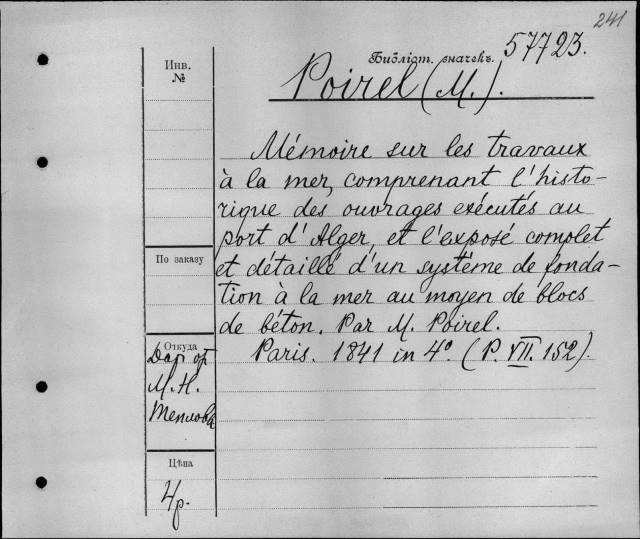 241
Библіот. значекъ. 57723.
Инв.
№
Poirel (M.).
Mémoire sur les travaux
à la mer, comprenant l'histo-
rique des ouvrages exécutés au
port d'Alger, et l'exposé complet
et détaillé d'un système de fonda-
tion à la mer au moyen de blocs
de béton. Par M. Poirel.
Paris. 1841 in 4º. (P. VII. 152).
По заказу
Откуда
Дар от
М. Н.
Теплова
Цѣна
4р.